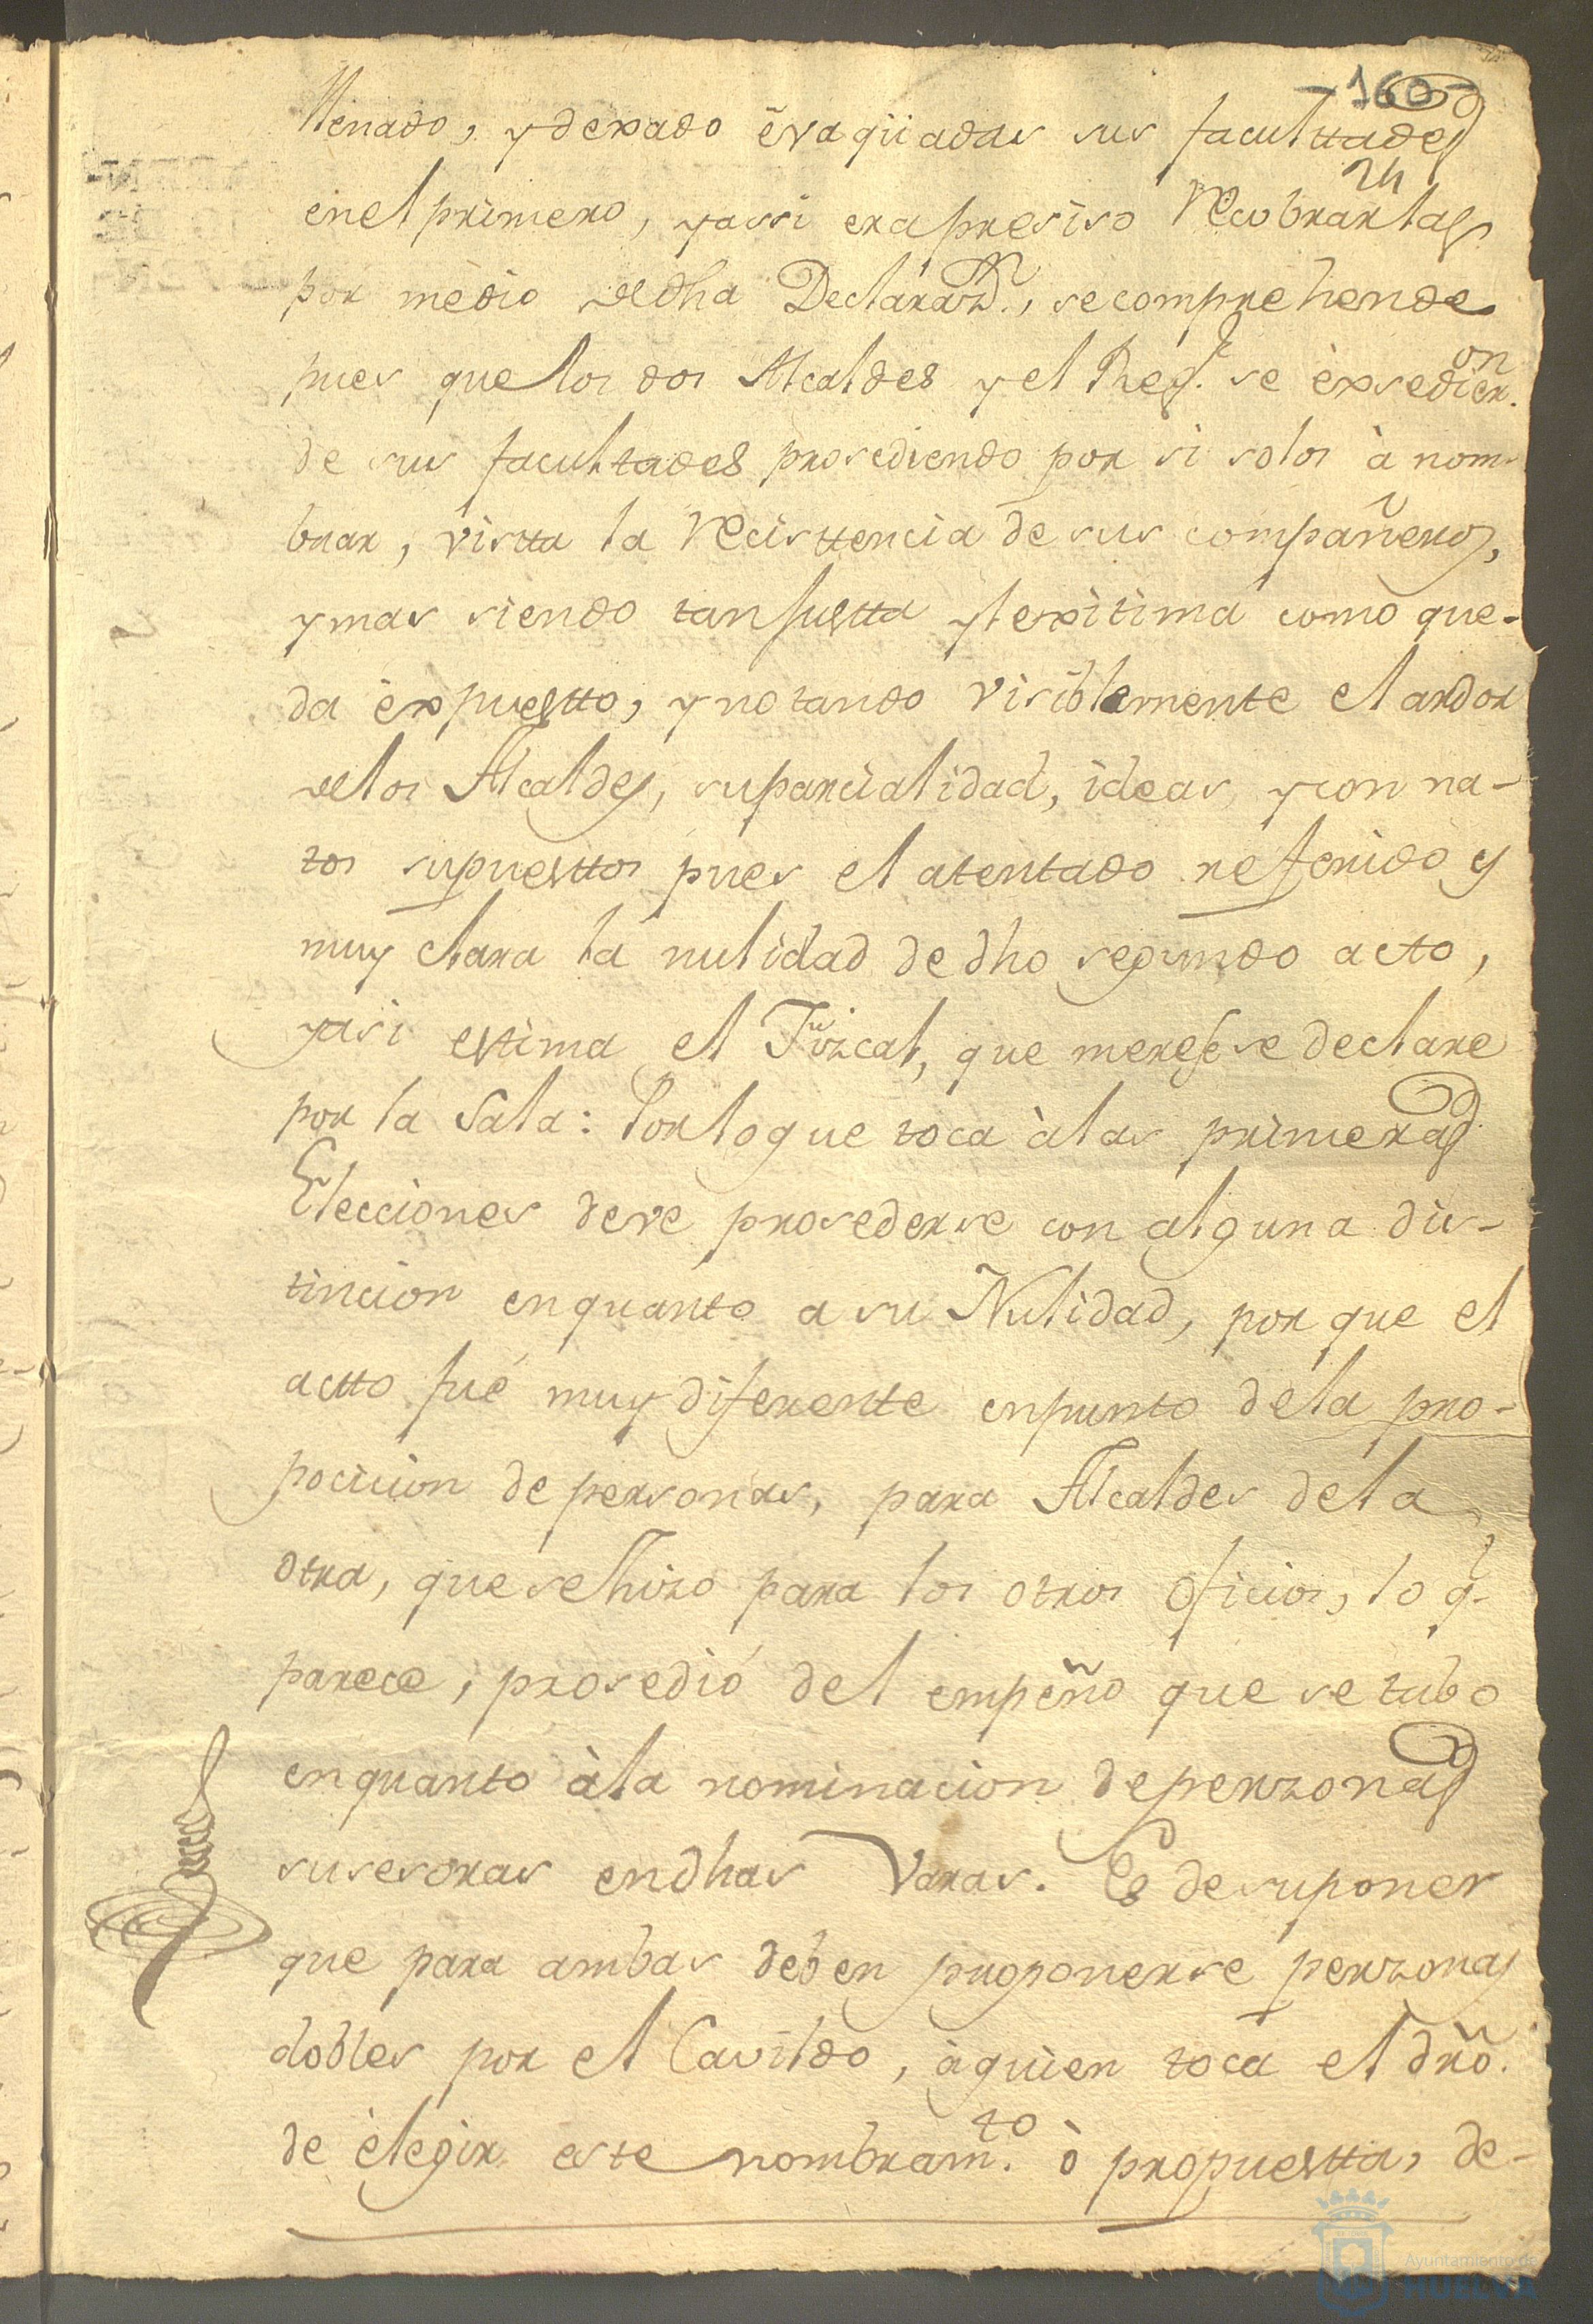 -160-
llenado, y dexado evaqüadas sus faculttades
24
en el primero, y assi era presiso Recobrarlas
por medio de dha Declarazn., se comprehende
pues que los dos Alcaldes y el Regr. se exsedieron
de sus facultades prosediendo por si solos à nom-
brar, vistta la Recisttencia de sus compañeros,
y mas siendo tan justta y lexitima como que-
da expuestto, y notando visiblemente el ardor
de los Alcaldes, su parcialidad, ideas, y con na-
tos supuesttos pues el atentado referido y
muy clara la nulidad de dho segundo acto,
y asi estima el Fizcal, que merese se declare
por la Sala: Por lo que toca à las primeras
Elecciones deve prosederse con alguna dis-
tincion en quanto a su Nulidad, por que el
actto fué muy diferente en punto de la pro-
pocicion de personas, para Alcaldes de la
otra, que se hizo para los otros oficios, lo q.
parece, prosedió del empeño que se tubo
en quanto à la nominacion de perzonas
susesoras en dhas Varas. Es de suponer
que para ambas deben proponerse perzonas
dobles por el Cavildo, à quien toca el dro.
de elegir este nombramto. ò propuestta, de-
Ayuntamiento de
HUELVA